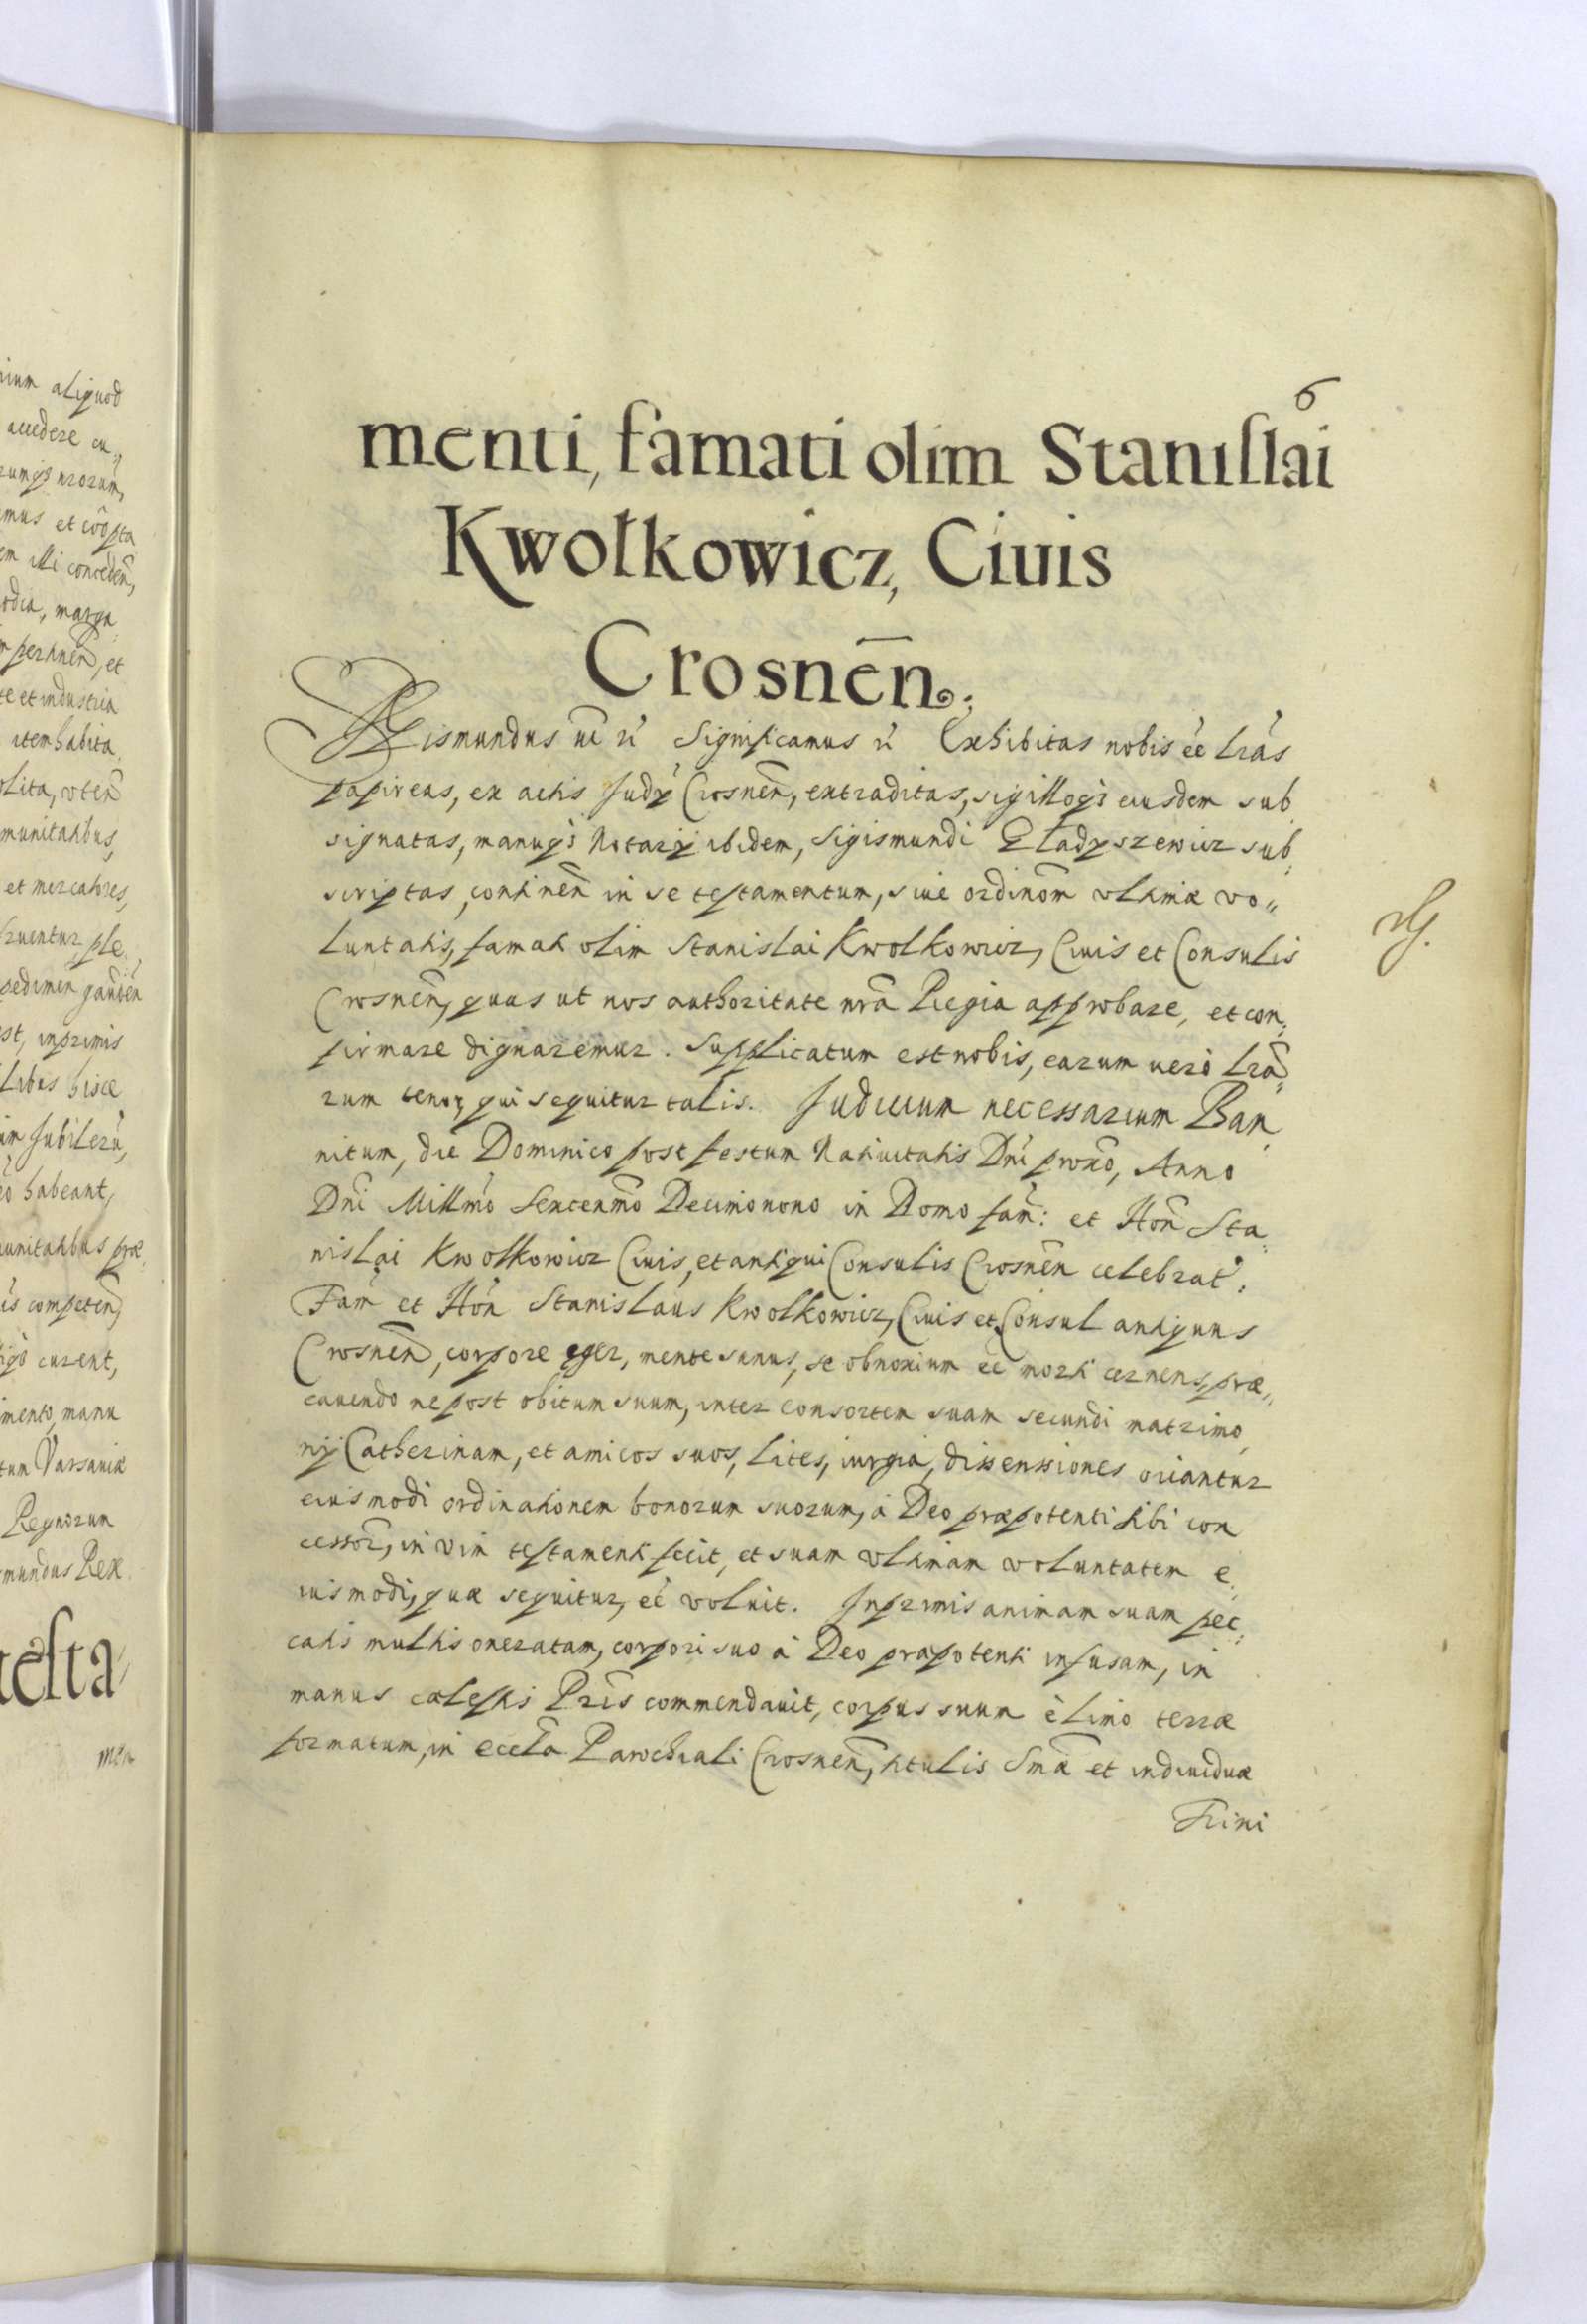 nium aliquod
accedere cu„
rumq3 nrorum,
mus et coõpta
em illi conceden̄,
odia, marga
pertinen̄, et
te et industria
item habita
olita, uten̄
munitatibus,
et mercatores,
fruentur ple
pedimen gauden̄
st, inprimis
libus hisce
im Jubileru,
habeant,
munitatibus præ,
is competen̄,
curent,
mento, manu
tum Varsaviæ
Regnorum
mundus Rex.
testa-
men
6
menti, famati olim Stanislai
Kwolkowicz, Civis
Crosnēn.
Sigismundus ut ń Significamus ń Exhibitas nobis ēe lrās
papireas, ex actis Judŷ Crosnen̄, extraditas, sigilloq3 eiusdem sub
signatas, manuq3 Notarÿ ibidem, Sigismundi Gładyszewicz sub„
scriptas, continen̄ in se testamentum, sive ordinōm ultimæ vo„
luntatis, famati olim Stanislai Kwolkowicz, Civis et Consulis
Crosnen̄, quas ut nos authoritate nrā Regia approbare, et con„
firmare dignaremur. Supplicatum est nobis, earum vero lrā„
rum tenor, qui sequitur talis. Judicium necessarium Ban„
nitum, die Dominico post festum Nativitatis Dnī proxō, Anno
Dnī Millmō Sexcenmō Decimonono in Domo fam̄: et Hon̄ Sta„
nislai Kwolkowicz Civis, et antiqui Consulis Crosnen̄ celebrat̄.
Fam̄ et Hon̄ Stanislaus Kwolkowicz, Civis et Consul antiquus
Crosnen̄, corpore eger, mente sanus, se obnoxium ēe morti cernens, præ„
cavendo ne post obitum suum, inter consortem suam secundi matrimo„
nij Catherinam, et amicos suos, lites, iurgia, dissensiones oriantur
eiusmodi ordinationem bonorum suorum, à Deo præpotenti sibi con
cessor̄, in vim testamenti fecit, et suam ultimam voluntatem e„
iusmodi, quæ sequitur, ēe voluit. Inprimis animam suam pec„
catis multis oneratam, corpori suo à Deo præpotenti infusam, in
manus cælestis Pris̄ commendavit, corpus suum è limo terræ
formatum, in eccłā Parochiali Crosnen̄, titulis Smǣ et individuæ
Trini